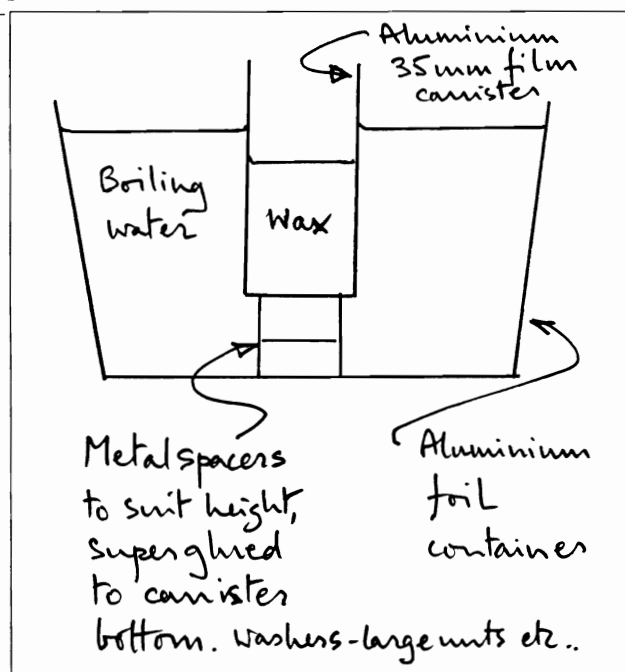 Aluminium
35mm film
cannister
Boiling
water
Wax
Metal spacers
to suit height,
superglued
to cannister
bottom. washers-large nuts etc..
Aluminium
foil
container